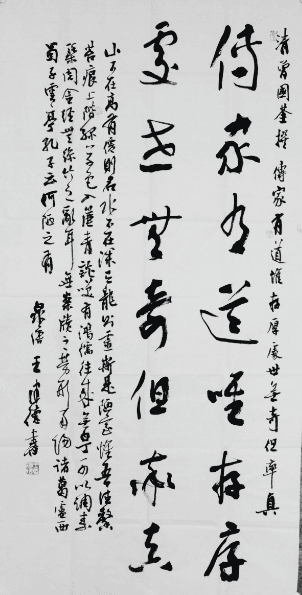 清曾國荃撰 傳家有道惟存厚處世無奇但率真
傳家有道唯存厚
處世無奇但率真
山不在高有僊則名水不在深有龍則靈斯是陋室惟吾德馨
苔痕上階綠草色入簾青談笑有鴻儒往來無白丁可以調素
琴閱金經無絲竹之亂耳無案牘之勞形南陽諸葛廬西
蜀子雲亭孔子云何陋之有
王 德書